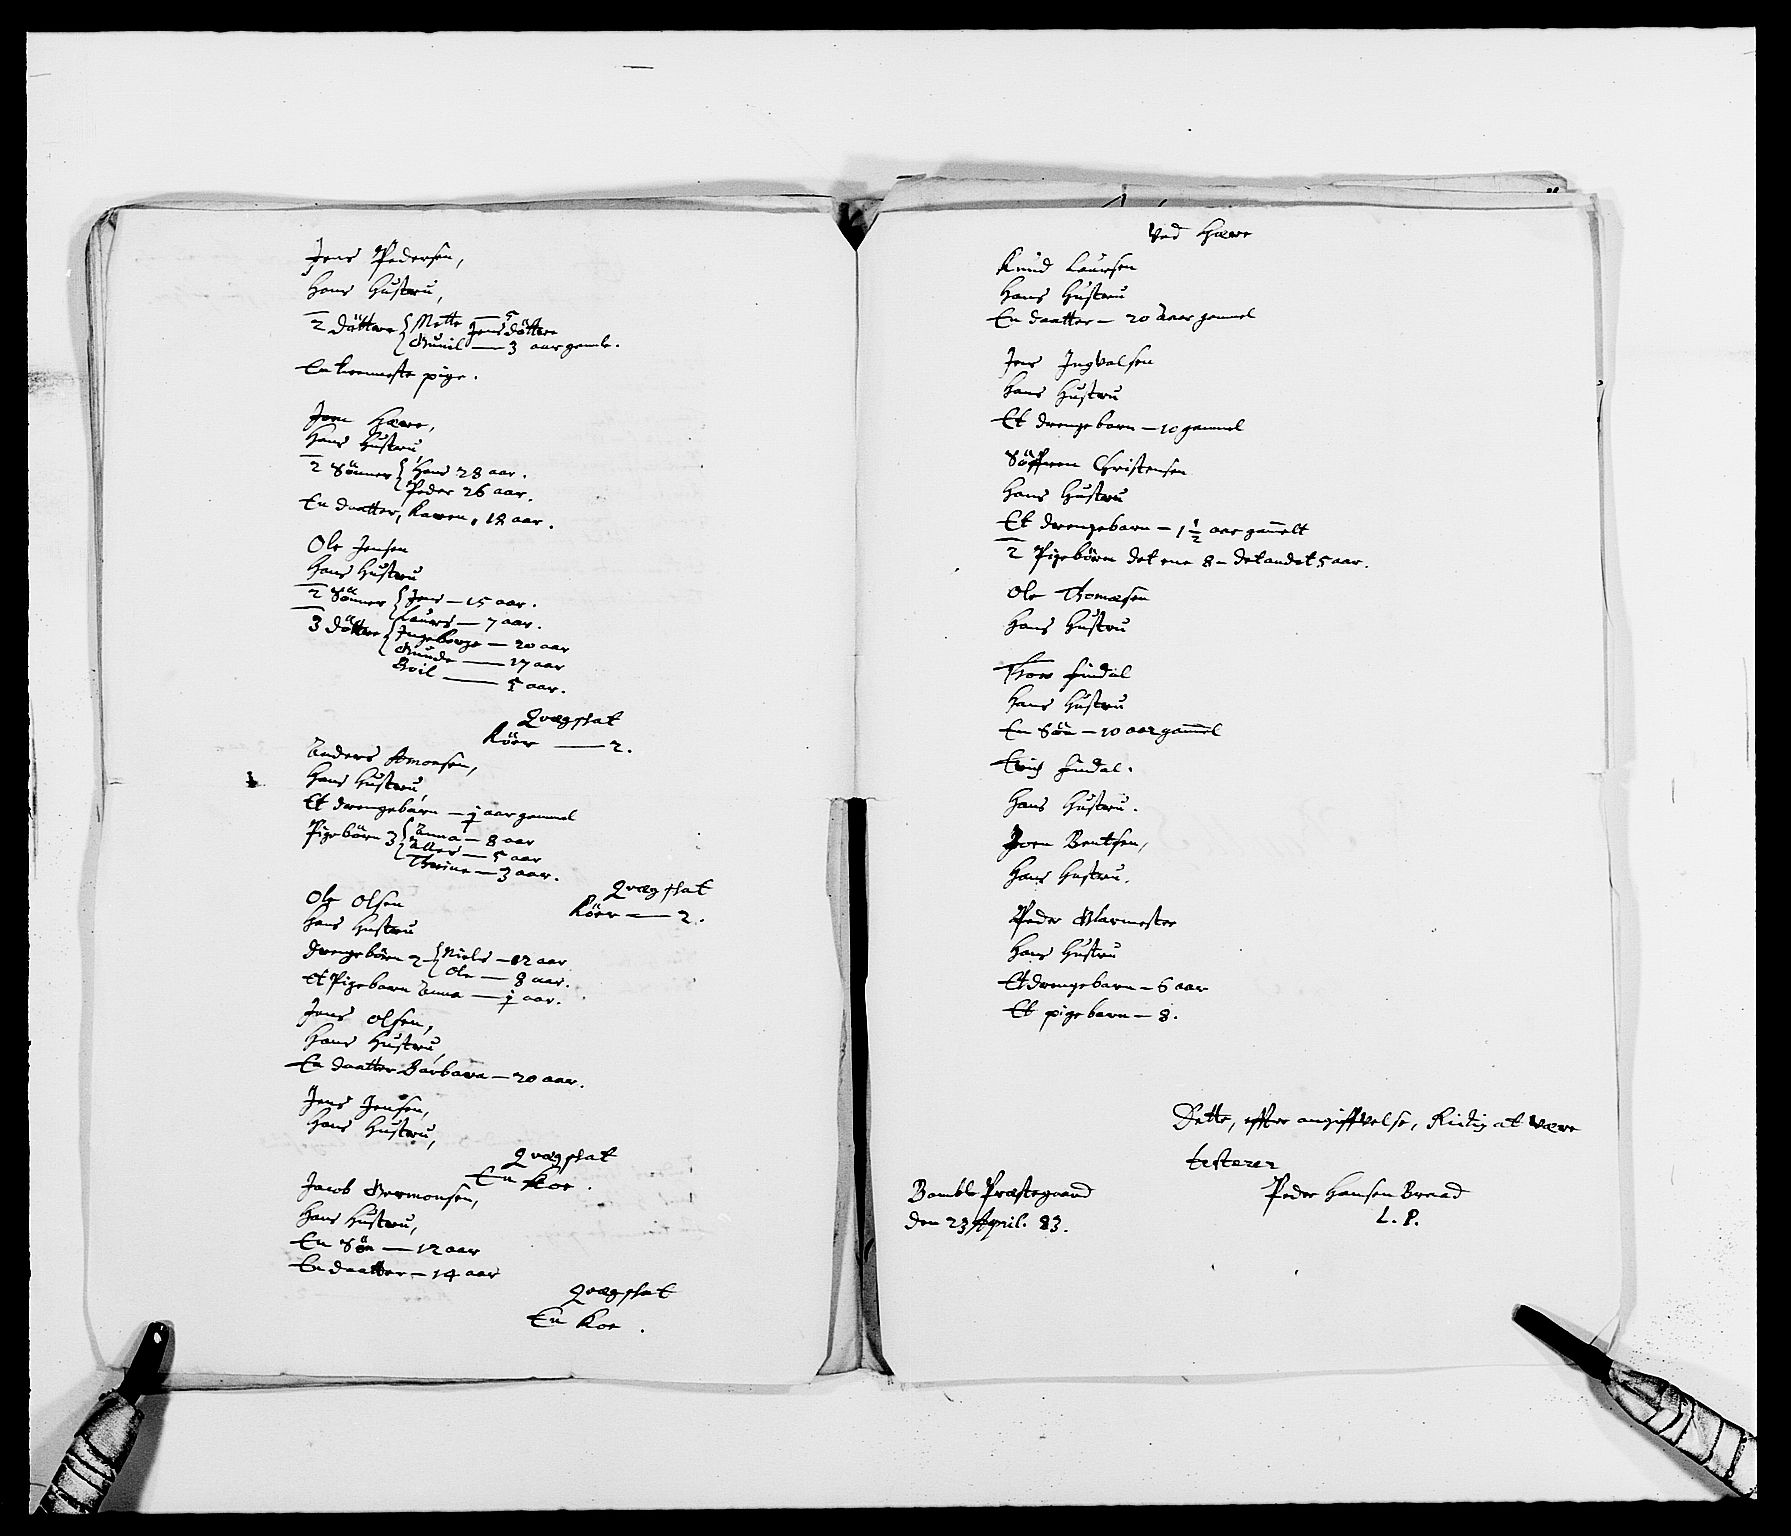 Jens Pedersen,
Hans Hustru,
2 döttre { Mette Jensdöttre 5
{ Gunil — 3 aar gamle.
En tienneste pige.
Joen Hære,
Hans Hustru,
2 Sönner { Hans 28 aar.
{ Peder 26 aar.
En daatter, Karen, 18 aar.
Ole Jensen
Hans Hustru
2 Sönner { Jens — 15 aar.
{ Laurs — 7 aar.
3 döttre { Ingeborge — 20 aar
{ Gunde — 17 aar
Boil — 5 aar.
Qvægskat
Köer — 2.
Anders Amonsen,
Hans Hustru,
Et drengebarn — 1 aar gammel
Pigebörn 3 { Anna — 8 aar
{ — 5 aar
Thrine — 3 aar.
Qvægskat
Köer — 2.
Ole Olsen
Hans Hustru
drengebörn 2 { Niels — 12 aar
{ Ole — 8 aar.
et Pigebarn Anna — 1 aar.
Jens Olsen,
Hans Hustru,
En daatter Barbara — 20 aar.
Jens Jensen,
Hans Hustru,
Qvægskat
En Koe.
Jacob Germonsen,
Hans Hustru,
En Sön — 12 aar
En daatter — 14 aar
Qvægskat
En Koe.
Ved Hære
Knud Laursen
Hans Hustru
En daatter — 20 aar gamel
Jens Ingvalsen
Hans Hustru
Et drengebarn — 10 gammel
Söffren Christensen
Hans Hustru
Et drengebarn — 1 1/2 aar gam̄elt
2 Pigebörn det ene 8 – det andet 5 aar.
Ole Thomæsen
Hans Hustru
Thor findal
Hans Hustru
En Sön — 10 aar gam̄el
Erich findal.
Hans Hustru.
Joen Bentsen,
Hans Hustru.
Peder Glarmester
Hans Hustru
Et drengebarn — 6 aar
Et pigebarn — 8.
Dette, effter angiffvelse, Rictig at være
testerer
Bamble Præstegaard
den 23 April. 83.
Peder Hansen Braad
L. P.